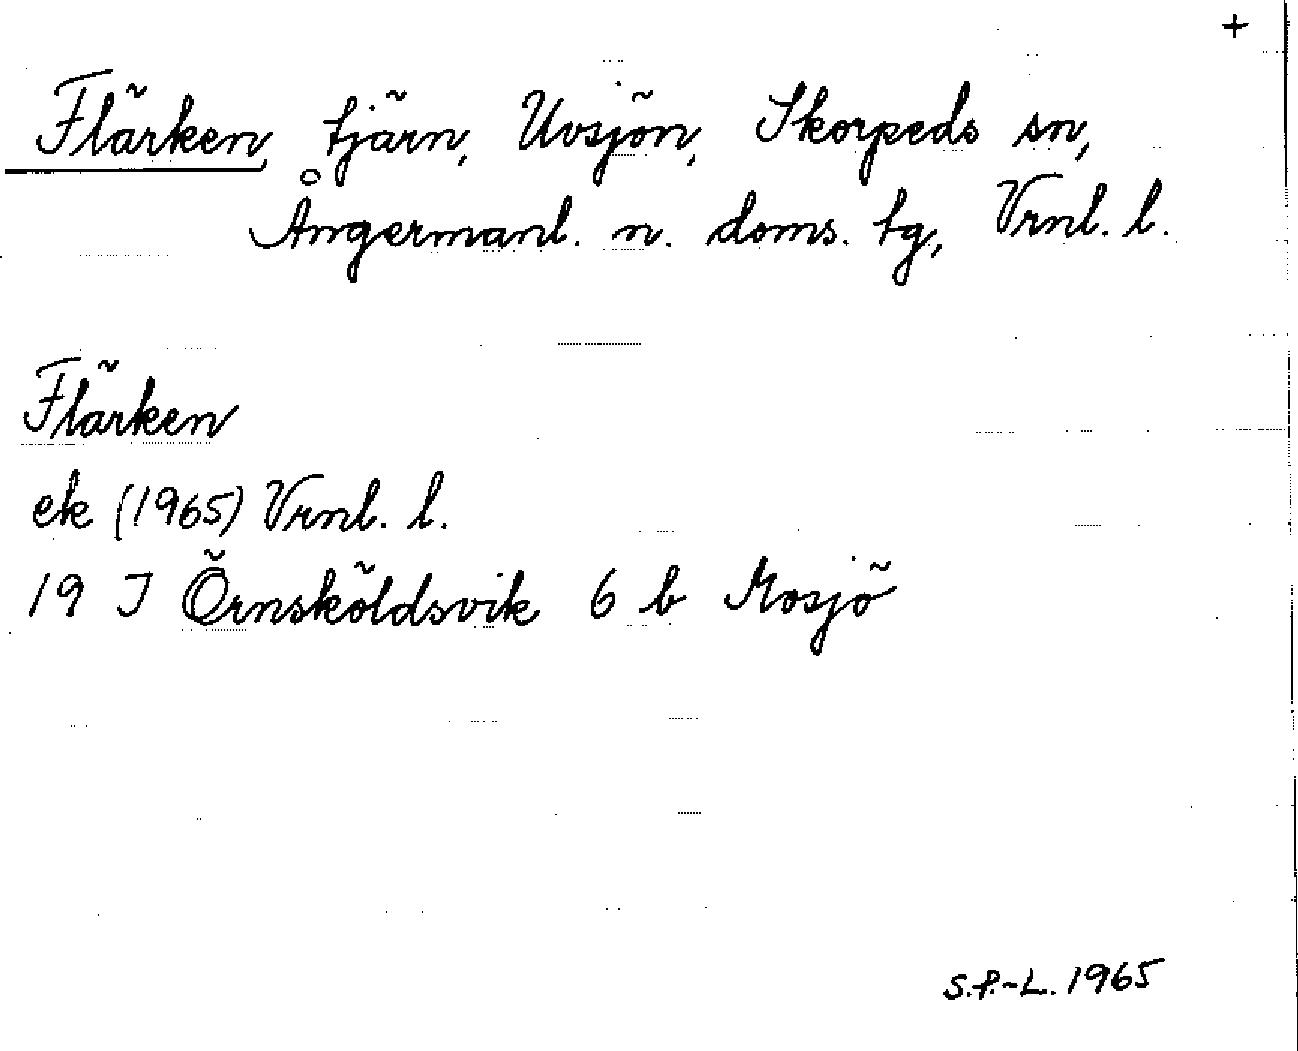 +
Flärken, tjärn, Uvsjön, Skorpeds sn,
Ångermanl. n. doms. tg, Vrnl. l.
Flärken
ek (1965) Vrnl. l.
19 J Örnsköldsvik 6 b Mosjö
S.P.-L. 1965